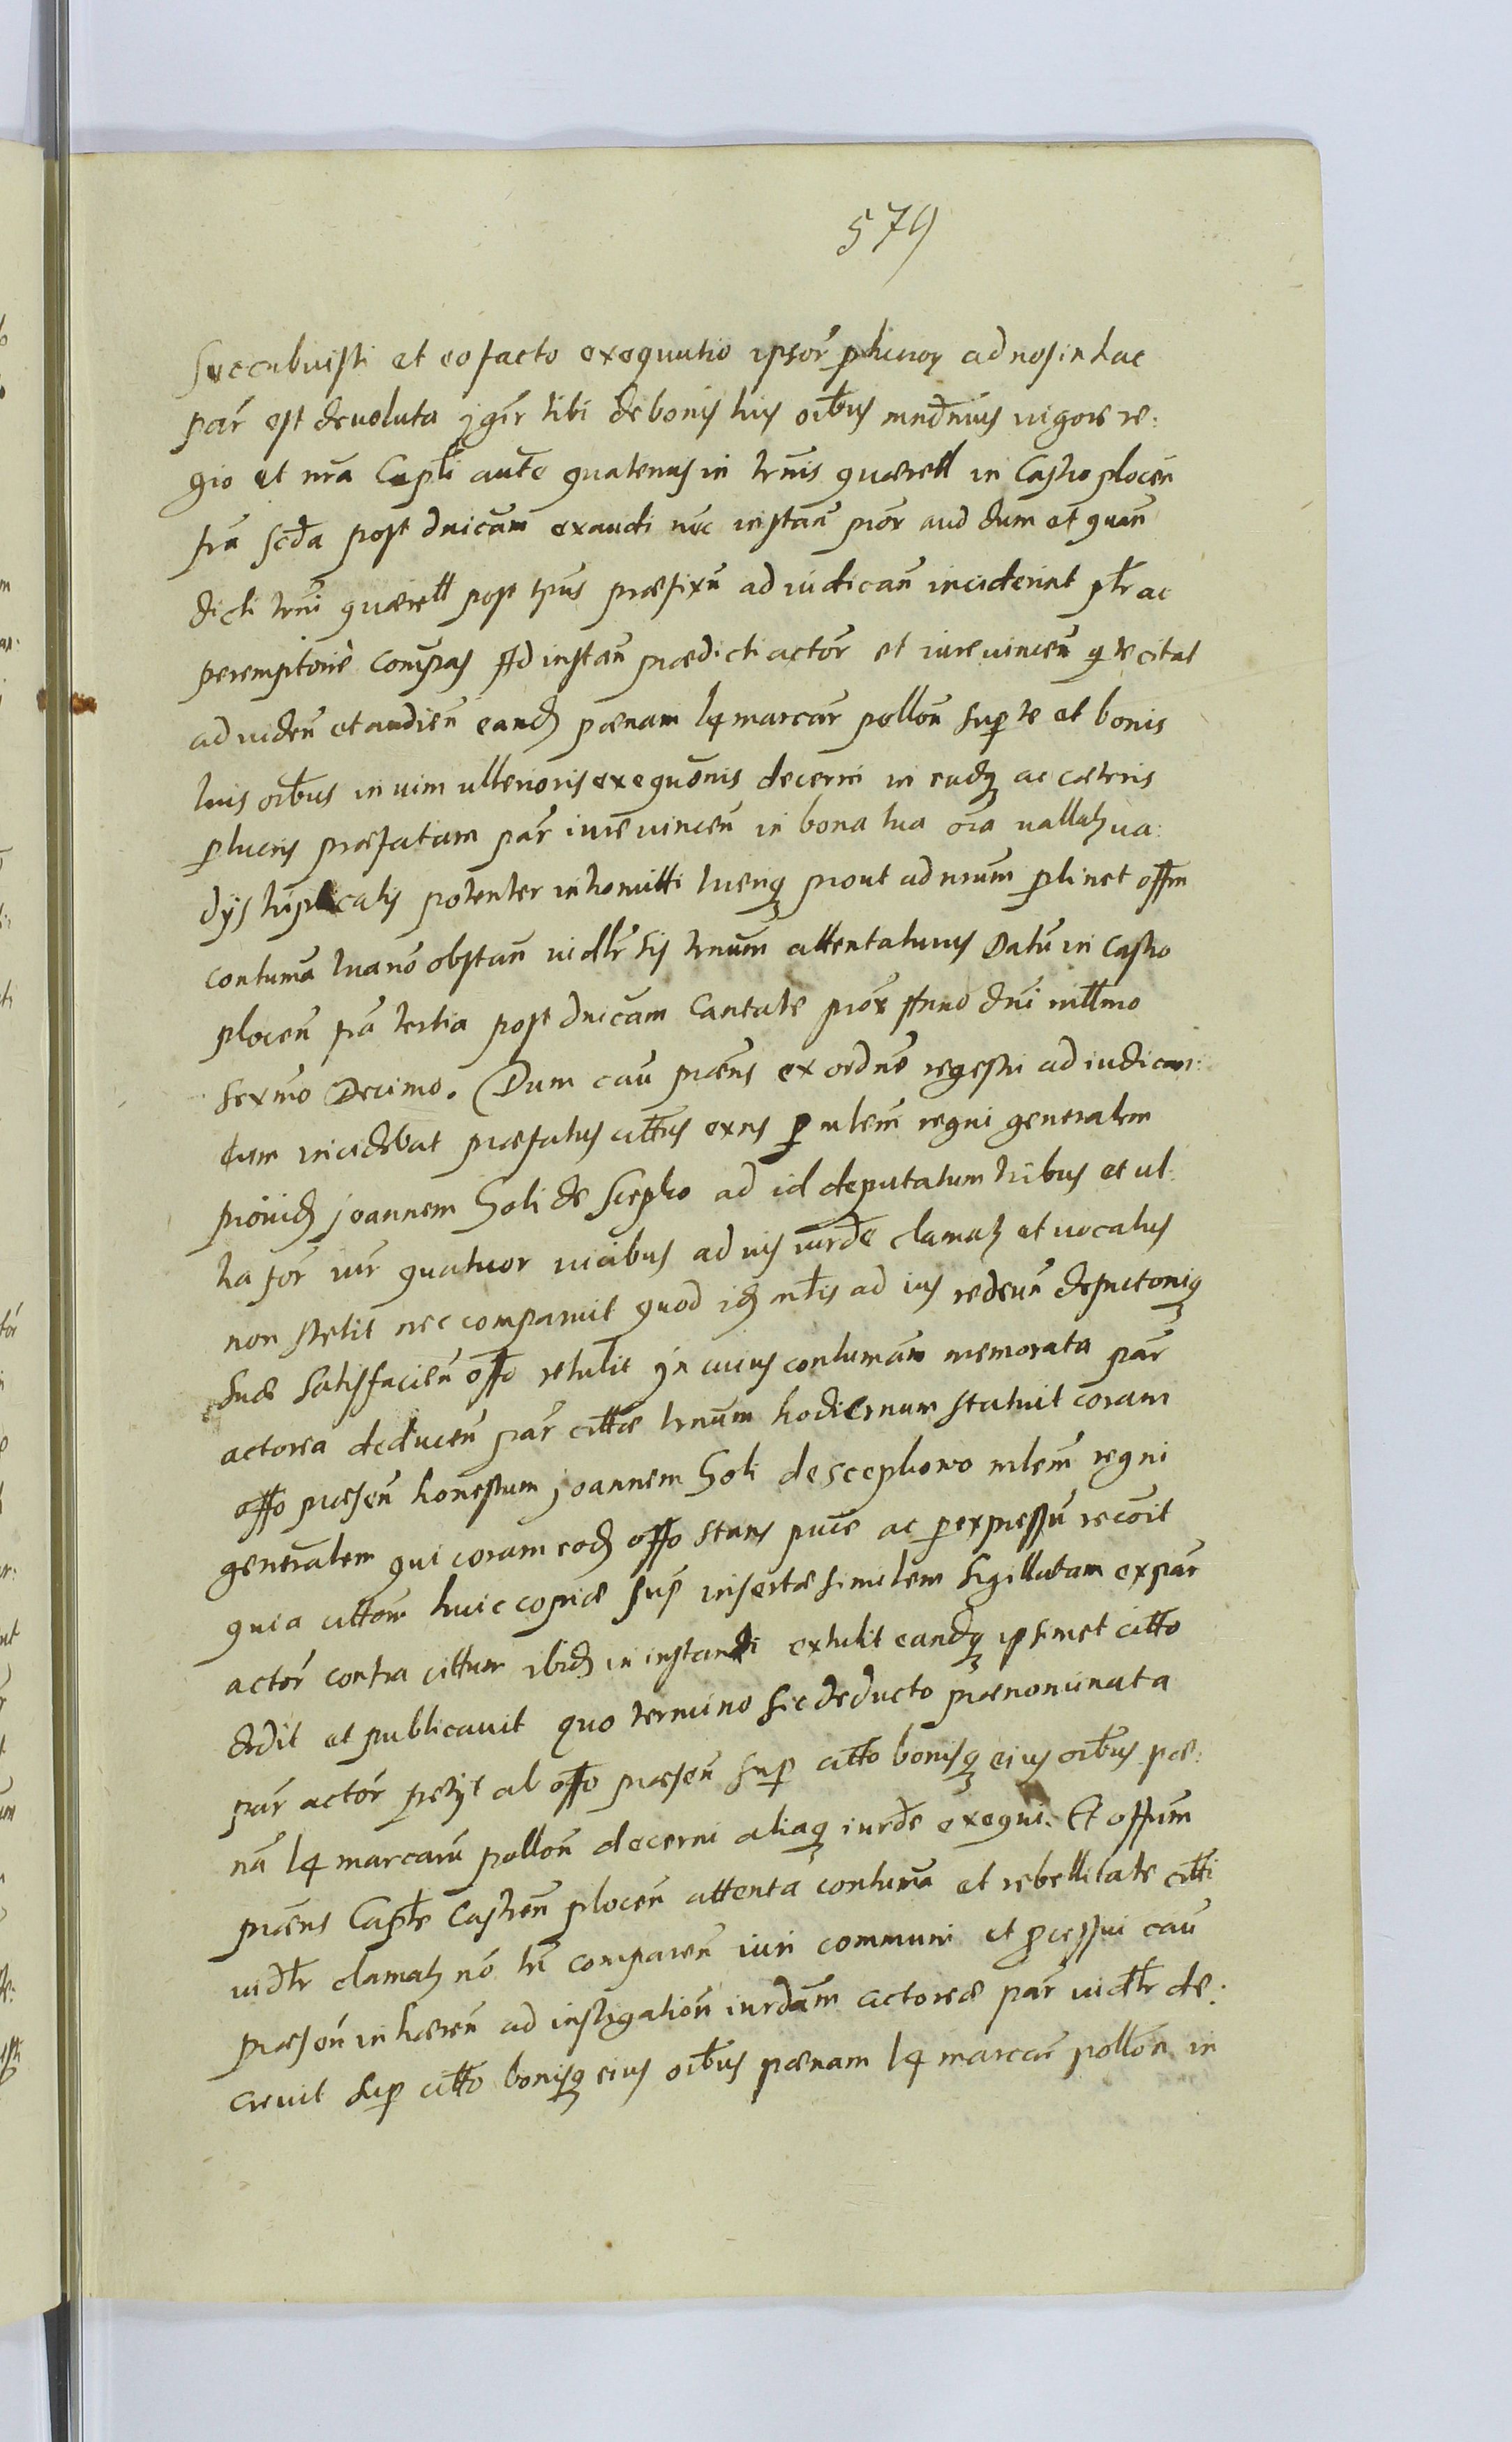 579
Succubuisti et eo facto exequutio ipsor perlucror ad nos in hac
par est devoluta jgir tibi de bonis tuis oibus mndmus vigore re:
gio et nra Captli aute quatenus in trnis quærell in Castro plocen
fra scda post dnicam exaudi nuc instan prox aud dum et quan
dicti trni quærell post tpus præfixu ad iudican inciderint ptr ac
peremptorie compas Ad instan prædicti actor et iurevincen q te citat
ad viden et audien eand pænam 14 marcar pollon sup te et bonis
tuis oibus in vim ulterioris exequonis decerni in eadq ac cæteris
perlucris præfatam par iurevincen in bona tua oia vallatz va:
dys triplicatis potenter intromitti tuenq prout ad nrum pertinet offm
contuma tua no obstan vidlr sis trnum attentaturus Datu in Castro
plocen fra tertia post dnicam Cantate prox Anno dni millmo
sexmo Decimo. Dum cau præns ex ordne regestri ad iudican:
dum incidebat præfatus cittus exns per mlem regni generalem
provid joannem Soli de Scepko ad id deputatum tribus et ul
tra for iur quatuor vicibus ad ius iurde clamatz et vocatus
non stetit nec comparuit quod id mtlis ad ius redeun deputoniq
suæ satisfacien offo retulit jn cuius contumam memorata par
actorea deducen par cittæ trnum hodiernum statuit coram
offo præsen honestum joannem Soli de scepkowo mlem regni
generalem qui coram eod offo stans puce ac per expressu recoit
quia cittom huic copiæ sup insertæ similem sigillatam ex par
actor contra cittum ibid in instanti extulit eandq ipsimet citto
dedit et publicavit quo termino sic deducto prænominata
par actor petyt ab offo præsen sup citto bonisq eius oibus pæ:
na 14 marcaru pollon decerni aliaq iurde exequi. Et offum
præns Captle Castren plocen attenta contuma et rebellitate citti
vidlr clamatz no tn comparen iuri communi et pcessui cau
præsen inhæren ad instigation iurdam actoreæ par vidlr de:
crevit sup citto bonisq eius oibus pænam 14 marcar pollon in